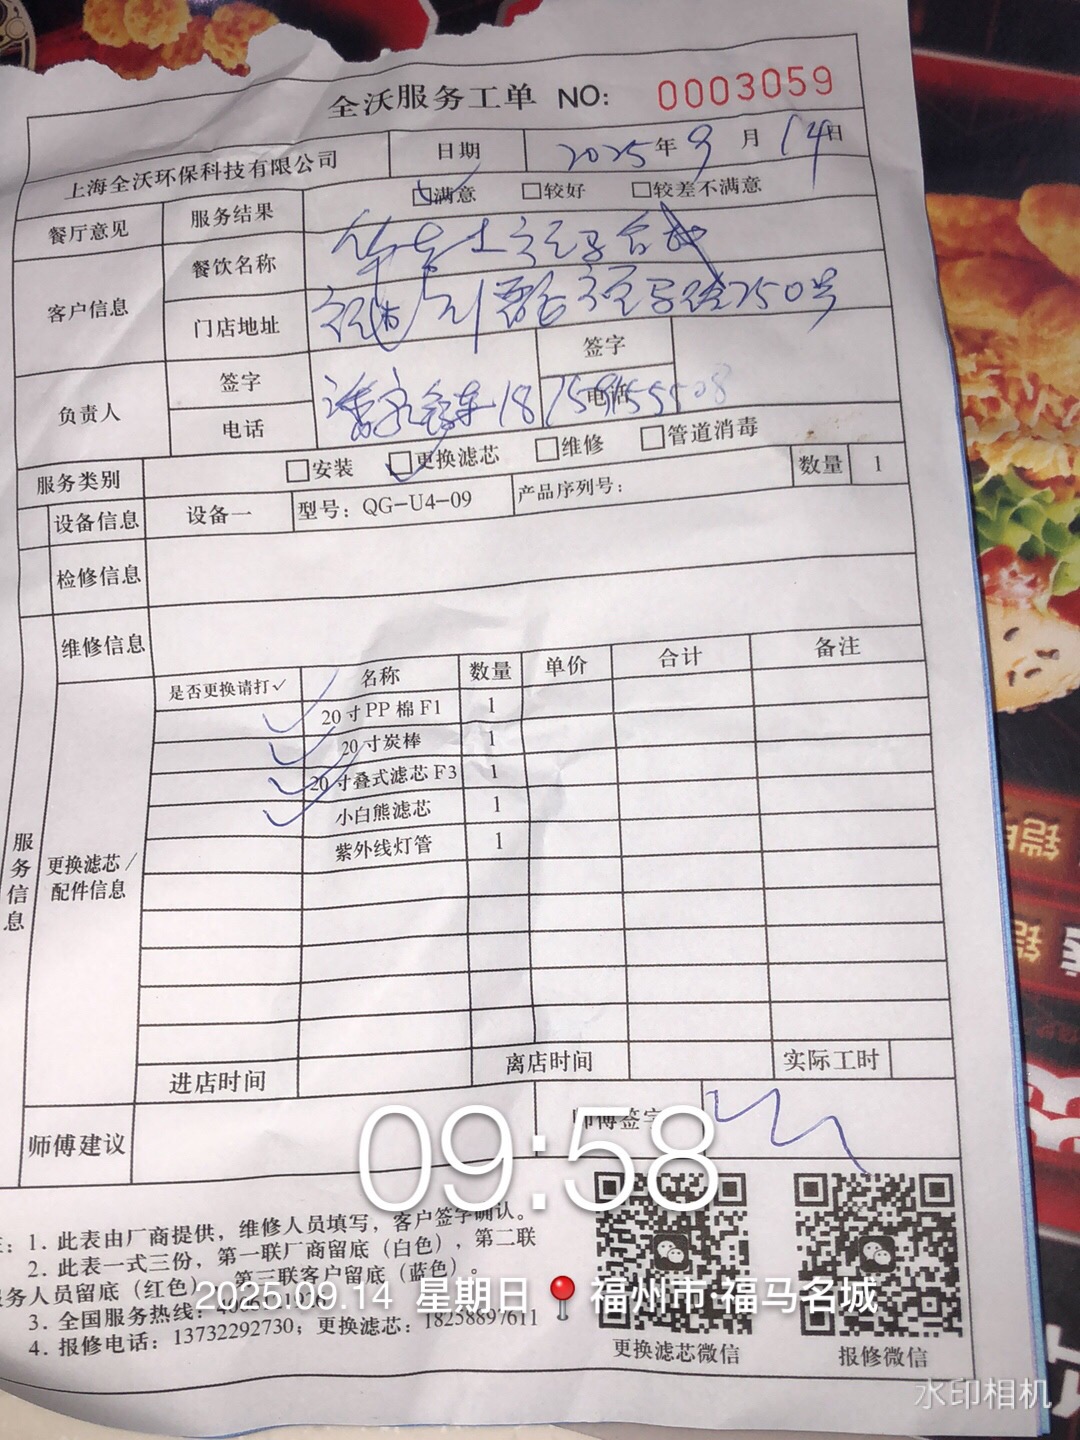 全沃服务工单 NO: 0003059
上海全沃环保科技有限公司 日期 2025年9月14日
餐厅意见 服务结果 满意 较好 较差不满意
客户信息 餐饮名称
门店地址 750号
负责人 签字 签字
电话 电话
服务类别 安装 更换滤芯 维修 管道消毒
设备信息 设备一 型号：QG-U4-09 产品序列号： 数量 1
检修信息
维修信息
服务信息
更换滤芯/配件信息
是否更换请打✓ 名称 数量 单价 合计 备注
✓ 20寸PP棉F1 1
✓ 20寸炭棒 1
✓ 20寸叠式滤芯F3 1
✓ 小白熊滤芯 1
紫外线灯管 1
进店时间 离店时间 实际工时
师傅建议 师傅签字
09:58
1. 此表由厂商提供，维修人员填写，客户签字确认。
2. 此表一式三份，第一联厂商留底（白色），第二联
服务人员留底（红色） 第三联客户留底（蓝色）。
2025.09.14 星期日 福州市·福马名城
3. 全国服务热线：
4. 报修电话：13732292730；更换滤芯：18258897611
更换滤芯微信 报修微信
水印相机